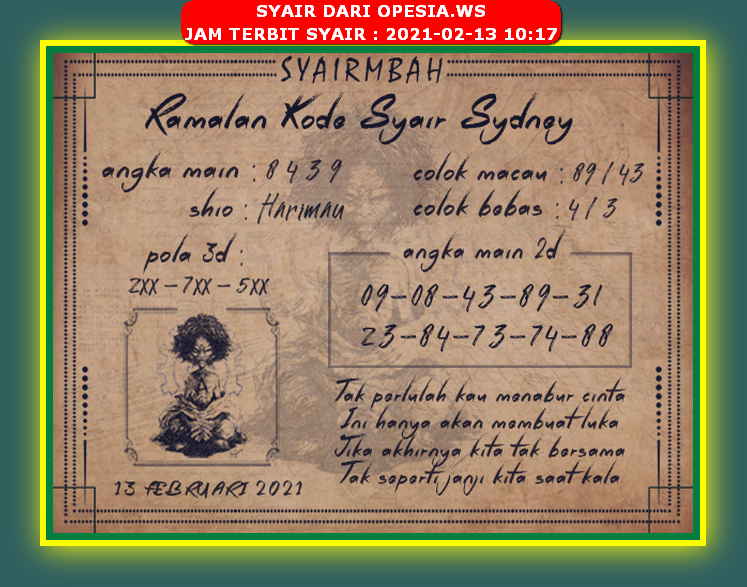 SYAIR DARI OPESIA.WS
JAM TERBIT SYAIR : 2021-02-13 10:17
SYAIRMBAH
Ramalan Kode Syair Sydney
angka main : 8 4 3 9
colok macau : 89 / 43
shio : Harimau
colok bebas : 4 / 3
pola 3d :
2XX – 7XX – 5XX
angka main 2d
09–08–43–89–31
23–84–73–74–88
Tak perlulah kau menabur cinta
Ini hanya akan membuat luka
Jika akhirnya kita tak bersama
Tak seperti janji kita saat kala
13 FEBRUARI 2021